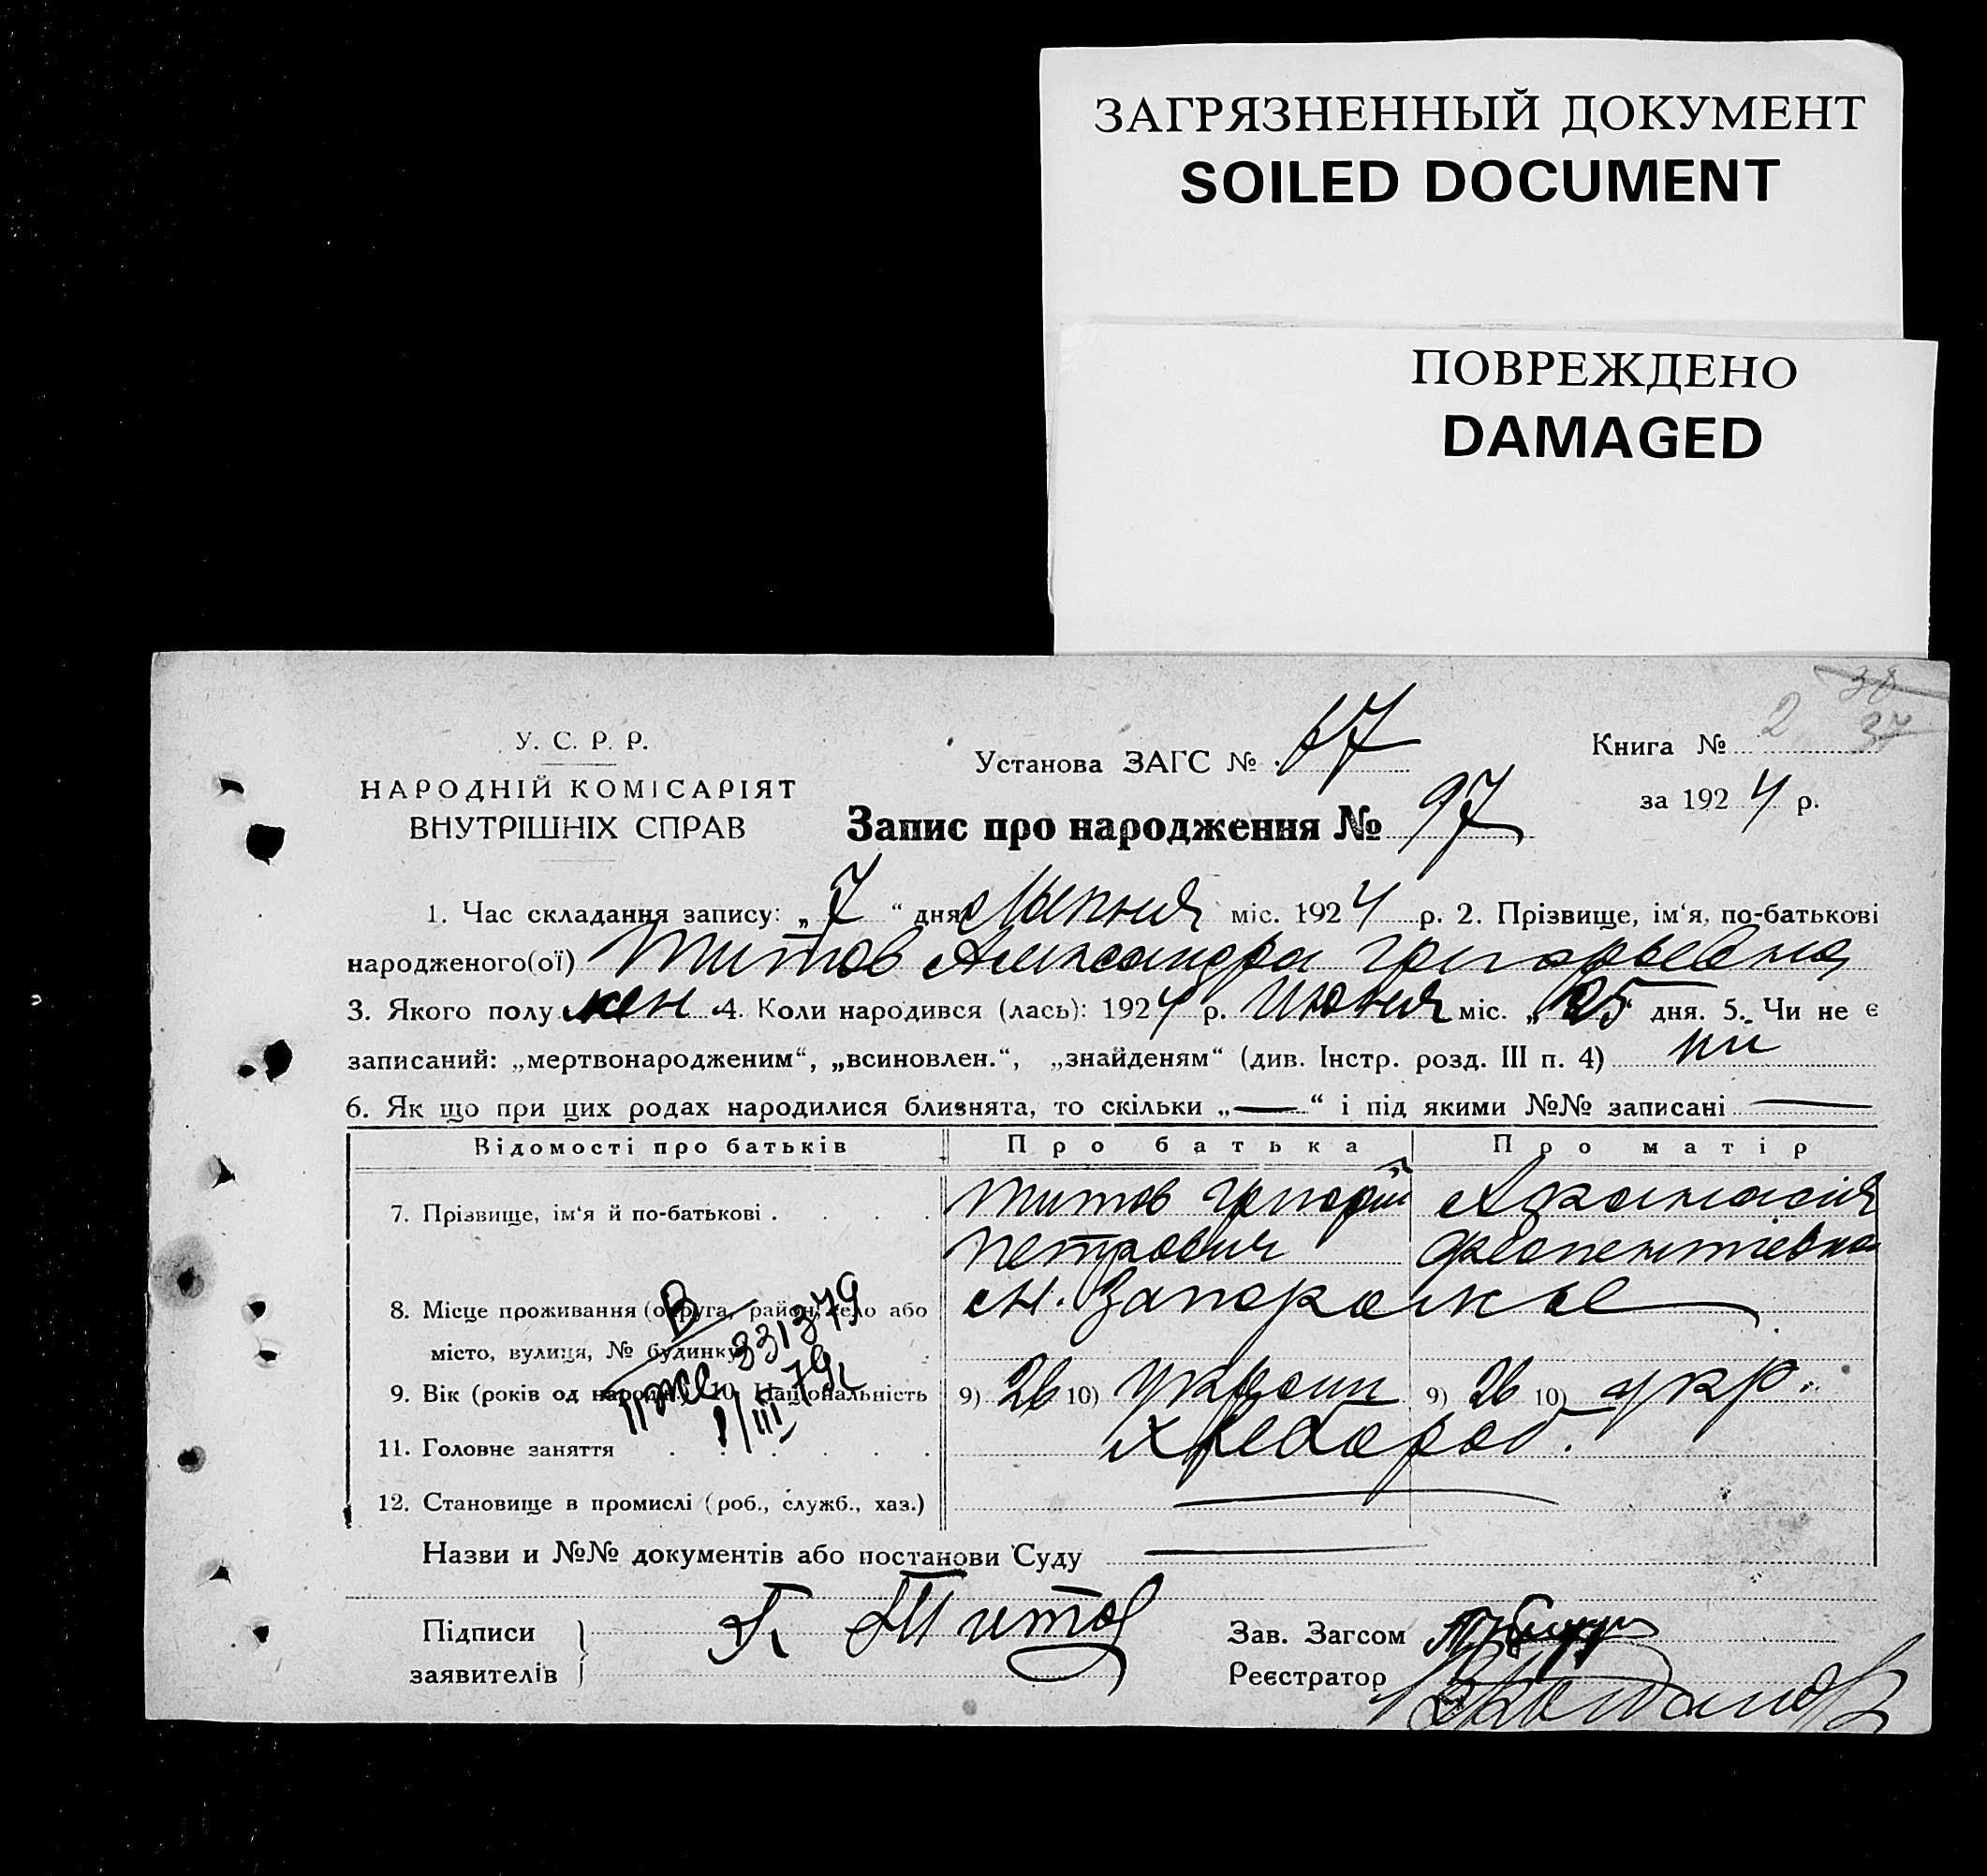 ЗАГРЯЗНЕННЫЙ ДОКУМЕНТ
SOILED DOCUMENT
ПОВРЕЖДЕНО
DAMAGED
38
37
У. С. Р. Р.
НАРОДНІЙ КОМІСАРІЯТ
ВНУТРІШНІХ СПРАВ
Установа ЗАГС № 17
Книга № 2
за 1924 р.
Запис про народження № 97
1. Час складання запису: „7“ дня Липня міс. 1924 р. 2. Прізвище, ім‘я, по-батькові
народженого(ої) Титов Александра Григорьевна
3. Якого полу жен 4. Коли народився (лась): 1924 р. Июня міс. „25 дня. 5. Чи не є
записаний: „мертвонародженим“, „всиновлен.“, „знайденям“ (див. Інстр. розд. III п. 4) ни
6. Як що при цих родах народилися близнята, то скільки „—“ і під якими №№ записані —
Відомості про батьків Про батька Про матір
7. Прізвище, ім‘я й по-батькові . . . . Титов Григорій
Петрович
8. Місце проживання (округа, район, село або
місто, вулиця, № будинку) м. Запорожье
В
331379
9. Вік (років од народж.) 10. Національність 9) 26 10) Украин 9) 26 10) укр.
1/III 79
11. Головне заняття . . . . . Хлебороб.
12. Становище в промислі (роб., служб., хаз.) —
Назви и №№ документів або постанови Суду —
Підписи
заявителів
Г. Титов
Зав. Загсом
Реєстратор